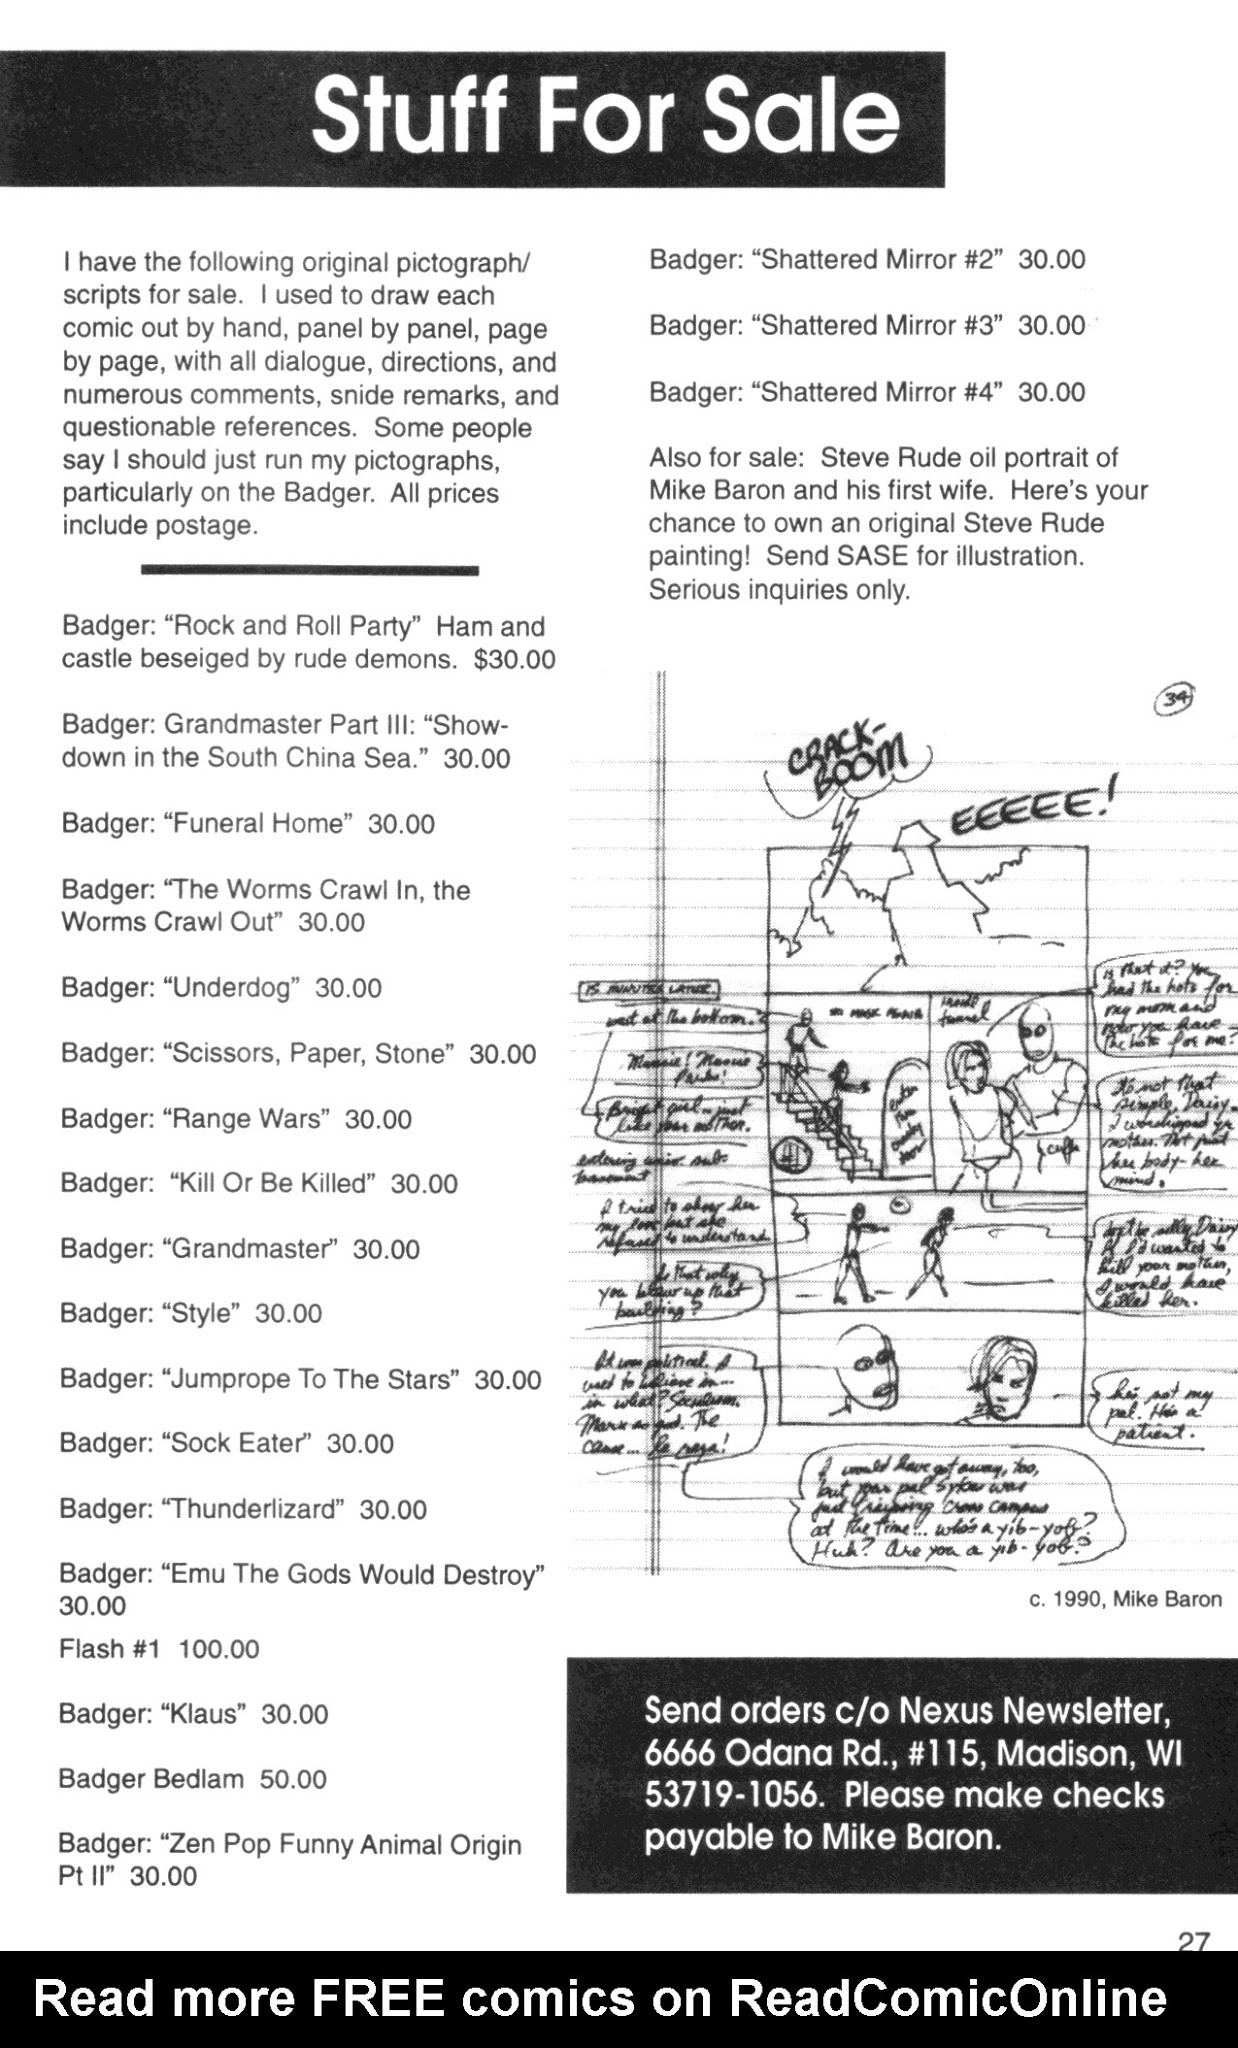 Stuff For Sale
I have the following original pictograph/
scripts for sale.  I used to draw each
comic out by hand, panel by panel, page
by page, with all dialogue, directions, and
numerous comments, snide remarks, and
questionable references.  Some people
say I should just run my pictographs,
particularly on the Badger.  All prices
include postage.
Badger: “Rock and Roll Party”  Ham and
castle beseiged by rude demons.  $30.00
Badger: Grandmaster Part III: “Show-
down in the South China Sea.”  30.00
Badger: “Funeral Home”  30.00
Badger: “The Worms Crawl In, the
Worms Crawl Out”  30.00
Badger: “Underdog”  30.00
Badger: “Scissors, Paper, Stone”  30.00
Badger: “Range Wars”  30.00
Badger:  “Kill Or Be Killed”  30.00
Badger: “Grandmaster”  30.00
Badger: “Style”  30.00
Badger: “Jumprope To The Stars”  30.00
Badger: “Sock Eater”  30.00
Badger: “Thunderlizard”  30.00
Badger: “Emu The Gods Would Destroy”
30.00
Flash #1  100.00
Badger: “Klaus”  30.00
Badger Bedlam  50.00
Badger: “Zen Pop Funny Animal Origin
Pt II”  30.00
Badger: “Shattered Mirror #2”  30.00
Badger: “Shattered Mirror #3”  30.00
Badger: “Shattered Mirror #4”  30.00
Also for sale:  Steve Rude oil portrait of
Mike Baron and his first wife.  Here’s your
chance to own an original Steve Rude
painting!  Send SASE for illustration.
Serious inquiries only.
34
CRACK-
BOOM
EEEEE!
15 MINUTES LATER.
wait at the bottom.
Bright girl... just
like your mother.
inside
tunnel
is that it? You
had the hots for
my mom and
now you have
the hots for me?
It's not that
simple, Daisy.
I worshipped yr
mother. Not just
her body- her
mind.
cuffs
I tried to show her
my love but she
refused to understand.
Is that why
you blew up that
building?
don't be silly, Daisy
If I'd wanted to
kill your mother,
I would have
killed her.
It was political. I
used to believe in...
in what? Socialism.
Marx as god. The
cause... la raza!
he's not my
pal. He's a
patient.
I would have got away, too,
but your pal Sykes was
just cross campus
at the time... who's a yib-yob?
Huh? Are you a yib-yob?
c. 1990, Mike Baron
Send orders c/o Nexus Newsletter,
6666 Odana Rd., #115, Madison, WI
53719-1056.  Please make checks
payable to Mike Baron.
27
Read more FREE comics on ReadComicOnline